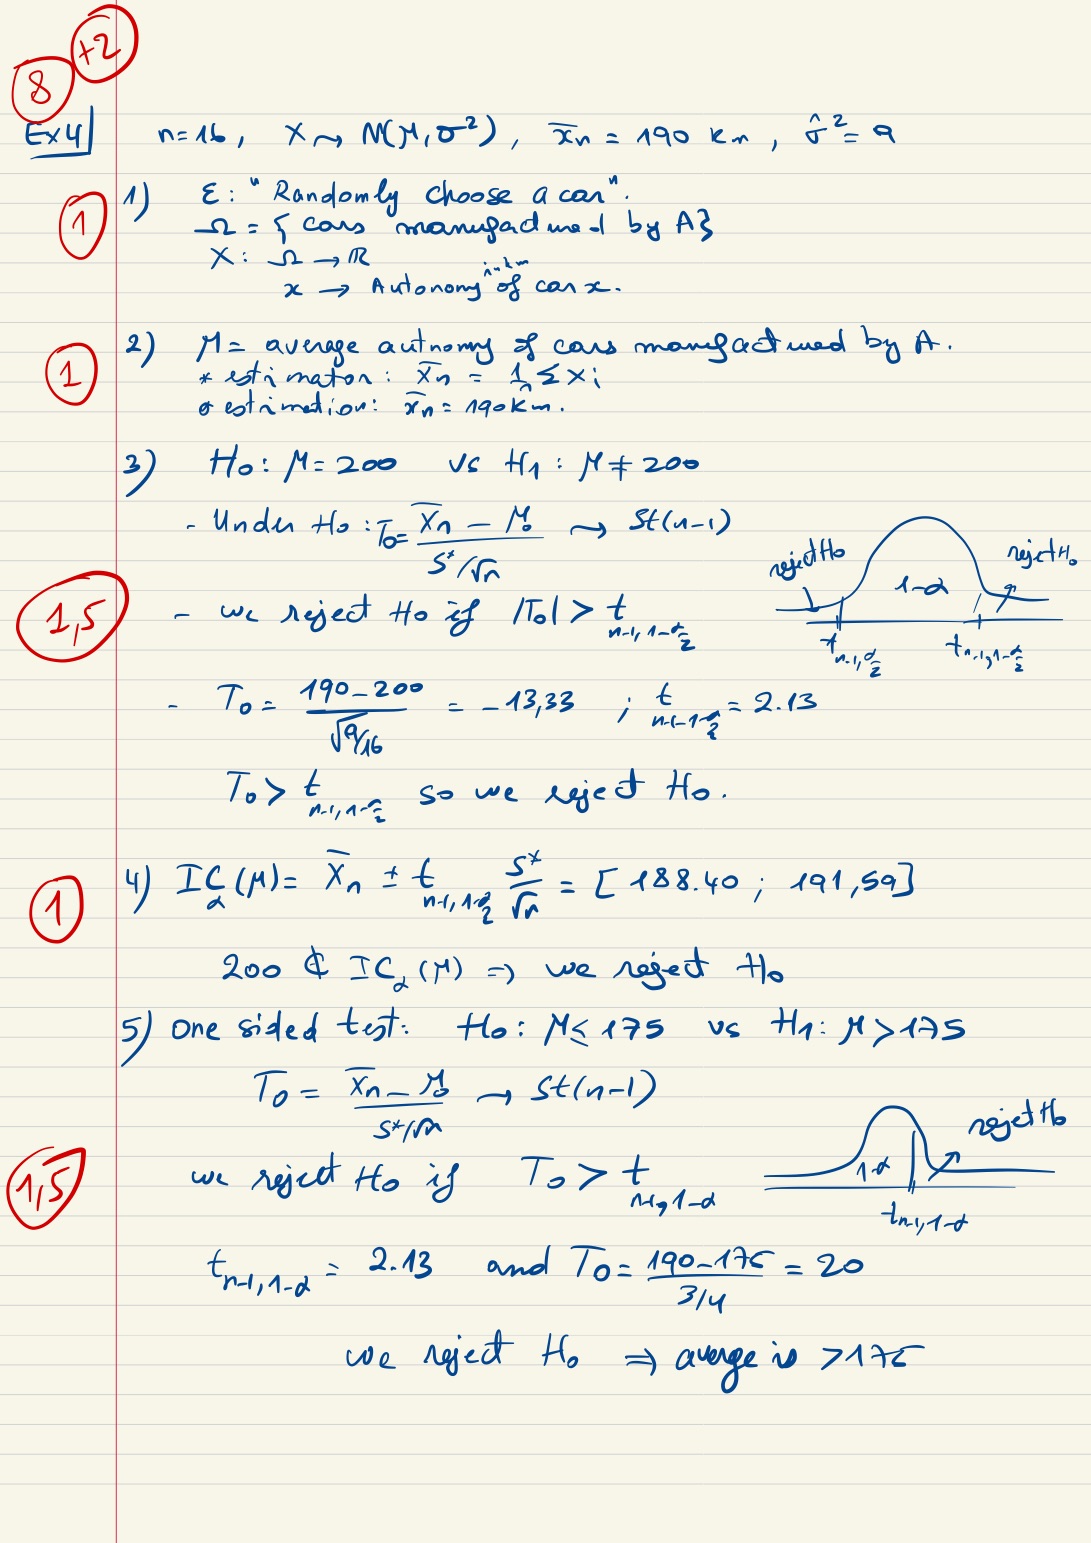 +2
8
Ex4 n=16, X ⤳ N(μ, σ²), x̄n = 190 km, σ̂² = 9
1 1) ε: "Randomly choose a car".
Ω = { cars manufactured by A}
X: Ω → ℝ
x → Autonomy in km of car x.
1 2) μ = average autnomy of cars manufactured by A.
* estimator: X̄n = 1/n Σ Xi
* estimation: x̄n = 190 km.
3) H0: μ = 200 vs H1: μ ≠ 200
- Under H0: T0 = (X̄n - μ0) / (S*/√n) ⤳ St(n-1)
reject H0 1-α reject H0
1,5 - we reject H0 if |T0| > t n-1, 1-α/2
t n-1, α/2 t n-1, 1-α/2
- T0 = (190-200) / √(9/16) = -13,33 ; t n-1, 1-α/2 = 2.13
T0 > t n-1, 1-α/2 so we reject H0.
1 4) ICα(μ) = X̄n ± t n-1, 1-α/2 S*/√n = [188.40 ; 191,59]
200 ∉ ICα(μ) => we reject H0
5) One sided test: H0: μ ≤ 175 vs H1: μ > 175
T0 = (X̄n - μ0) / (S*/√n) → St(n-1)
1,5 we reject H0 if T0 > t n-1, 1-α
1-α reject H0
t n-1, 1-α
t n-1, 1-α = 2.13 and T0 = (190-175) / (3/4) = 20
we reject H0 => average is > 175